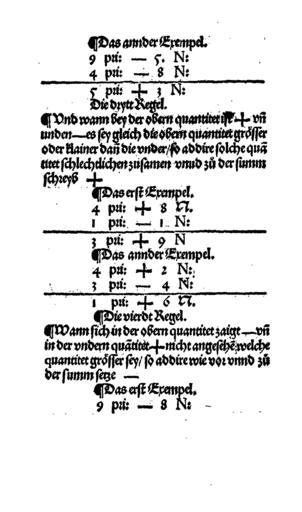 ¶Das annder Exempel.
9 pri: — 5. N:
4 pri: — 8 N:
5 pri: + 3 N:
Die drytt Regel.
¶Vnd wann bey der obern quantitet ist + vñ
unden — es sey gleich die obern quantitet grösser
oder klainer dañ die vnder/ so addire solche quã
titet schlechtlichen zusamen vnnd zů der summ
schreyb +
¶Das erst Exempel.
4 pri: + 8 N.
1 pri: — 1 N:
3 pri: + 9 N
¶Das annder Exempel.
4 pri: + 2 N:
3 pri: — 4 N:
1 pri: + 6 N.
¶Die vierdt Regel.
¶Wann sich in der obern quantitet zaigt — vñ
in der vndern quãtitet + nicht angesehẽ welche
quantitet grösser sey/ so addire wie vor vnnd zů
der summ setze —
¶Das erst Exempel.
9 pri: — 8 N: